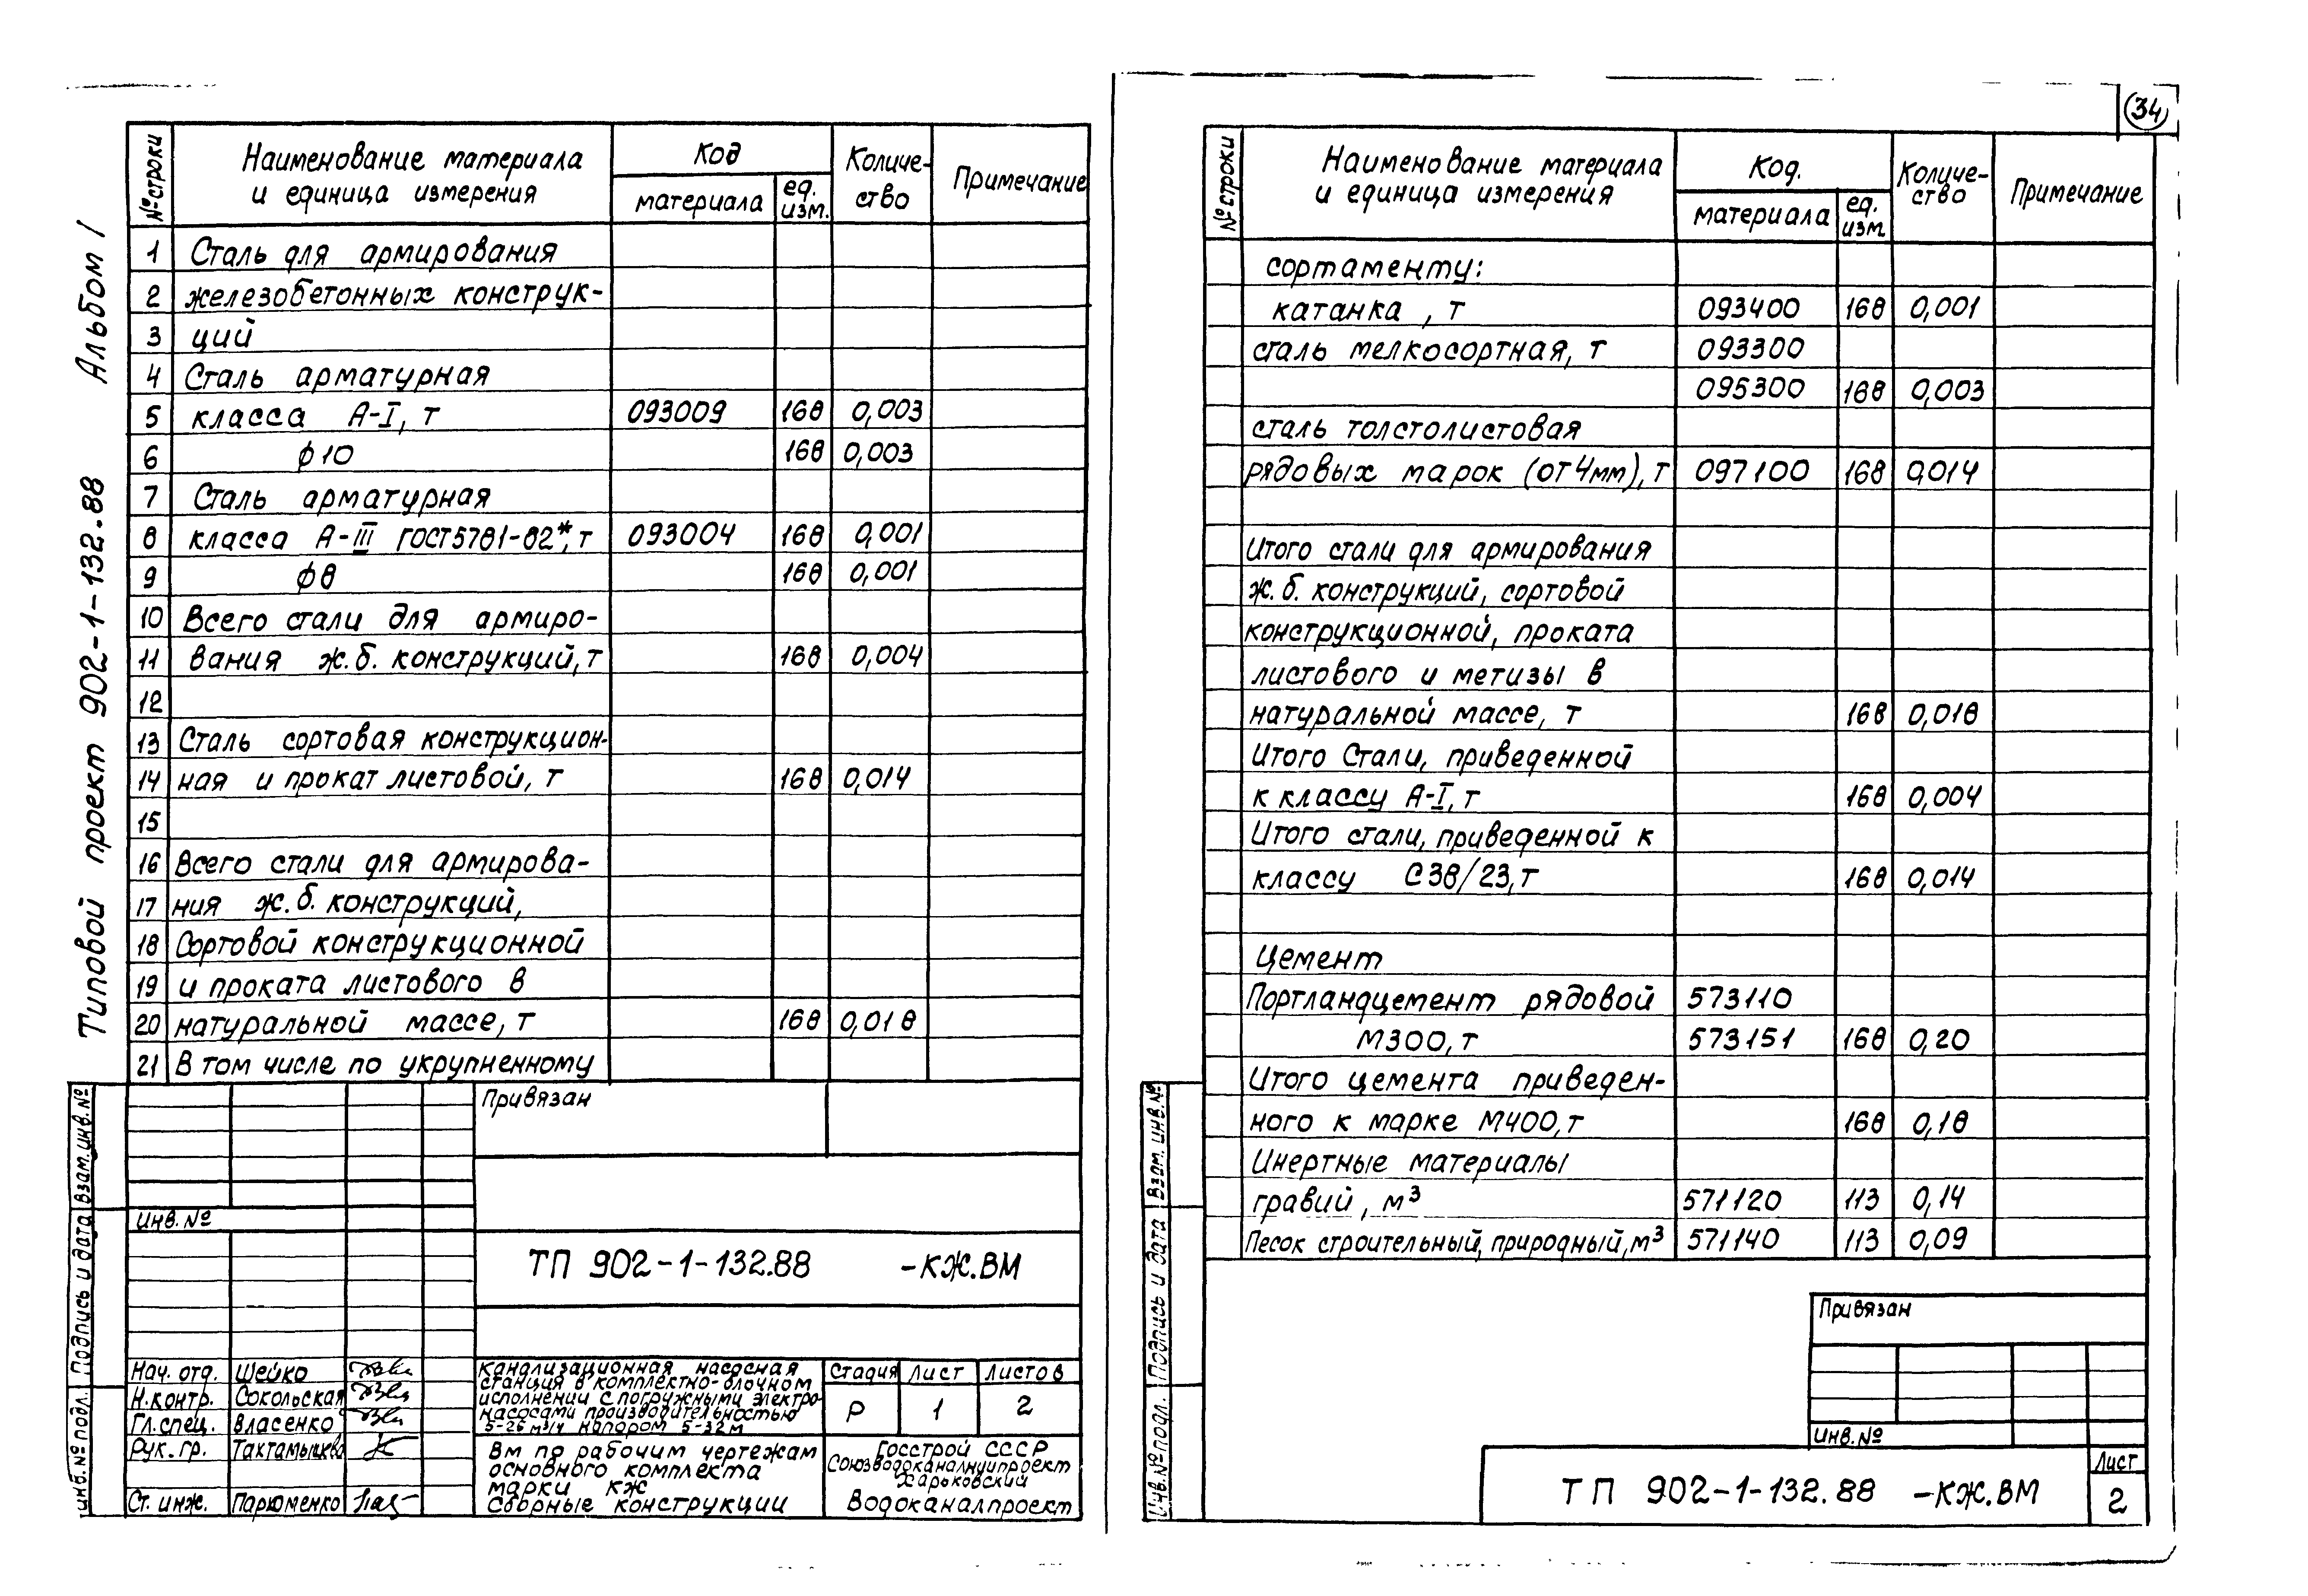 Типовой проект 902-1-132.88 Альбом I
№ строки
Наименование материала и единица измерения
Код
материала
ед. изм.
Количе-ство
Примечание
1 Сталь для армирования
2 железобетонных конструк-
3 ций
4 Сталь арматурная
5 класса А-I, т 093009 168 0,003
6 ф10 168 0,003
7 Сталь арматурная
8 класса А-III ГОСТ5781-82*, т 093004 168 0,001
9 ф8 168 0,001
10 Всего стали для армиро-
11 вания ж.б. конструкций, т 168 0,004
12
13 Сталь сортовая конструкцион-
14 ная и прокат листовой, т 168 0,014
15
16 Всего стали для армирова-
17 ния ж.б. конструкций,
18 Сортовой конструкционной
19 и проката листового в
20 натуральной массе, т 168 0,018
21 В том числе по укрупненному
Привязан
Инв. №
ТП 902-1-132.88 -КЖ.ВМ
Нач. отд. Шейко
Н.контр. Сокольская
Гл.спец. Власенко
Рук. гр.
Ст. инж. Пархоменко
канализационная насосная
станция в комплектно-блочном
исполнении с погружными электро-
насосами производительностью
5-26 м³/ч напором 5-32 м
Стадия Лист Листов
Р 1 2
Вм по рабочим чертежам
основного комплекта
марки КЖ
Сборные конструкции
Госстрой СССР
Союзводоканалниипроект
Харьковский
Водоканалпроект
Инв. № подл. Подпись и дата Взам. инв. №
34
№ строки
Наименование материала и единица измерения
Код.
материала
ед. изм
Количе-ство
Примечание
сортаменту:
катанка, т 093400 168 0,001
сталь мелкосортная, т 093300
095300 168 0,003
сталь толстолистовая
рядовых марок (от 4мм), т 097100 168 0,014
Итого стали для армирования
ж.б. конструкций, сортовой
конструкционной, проката
листового и метизы в
натуральной массе, т 168 0,018
Итого Стали, приведенной
к классу А-I, т 168 0,004
Итого стали, приведенной к
классу С38/23, т 168 0,014
Цемент
Портландцемент рядовой 573110
М300, т 573151 168 0,20
Итого цемента приведен-
ного к марке М400, т 168 0,18
Инертные материалы
гравий, м³ 571120 113 0,14
Песок строительный, природный, м³ 571140 113 0,09
Привязан
Инв. №
ТП 902-1-132.88 -КЖ.ВМ
Лист
2
Инв. № подл. Подпись и дата Взам. инв. №